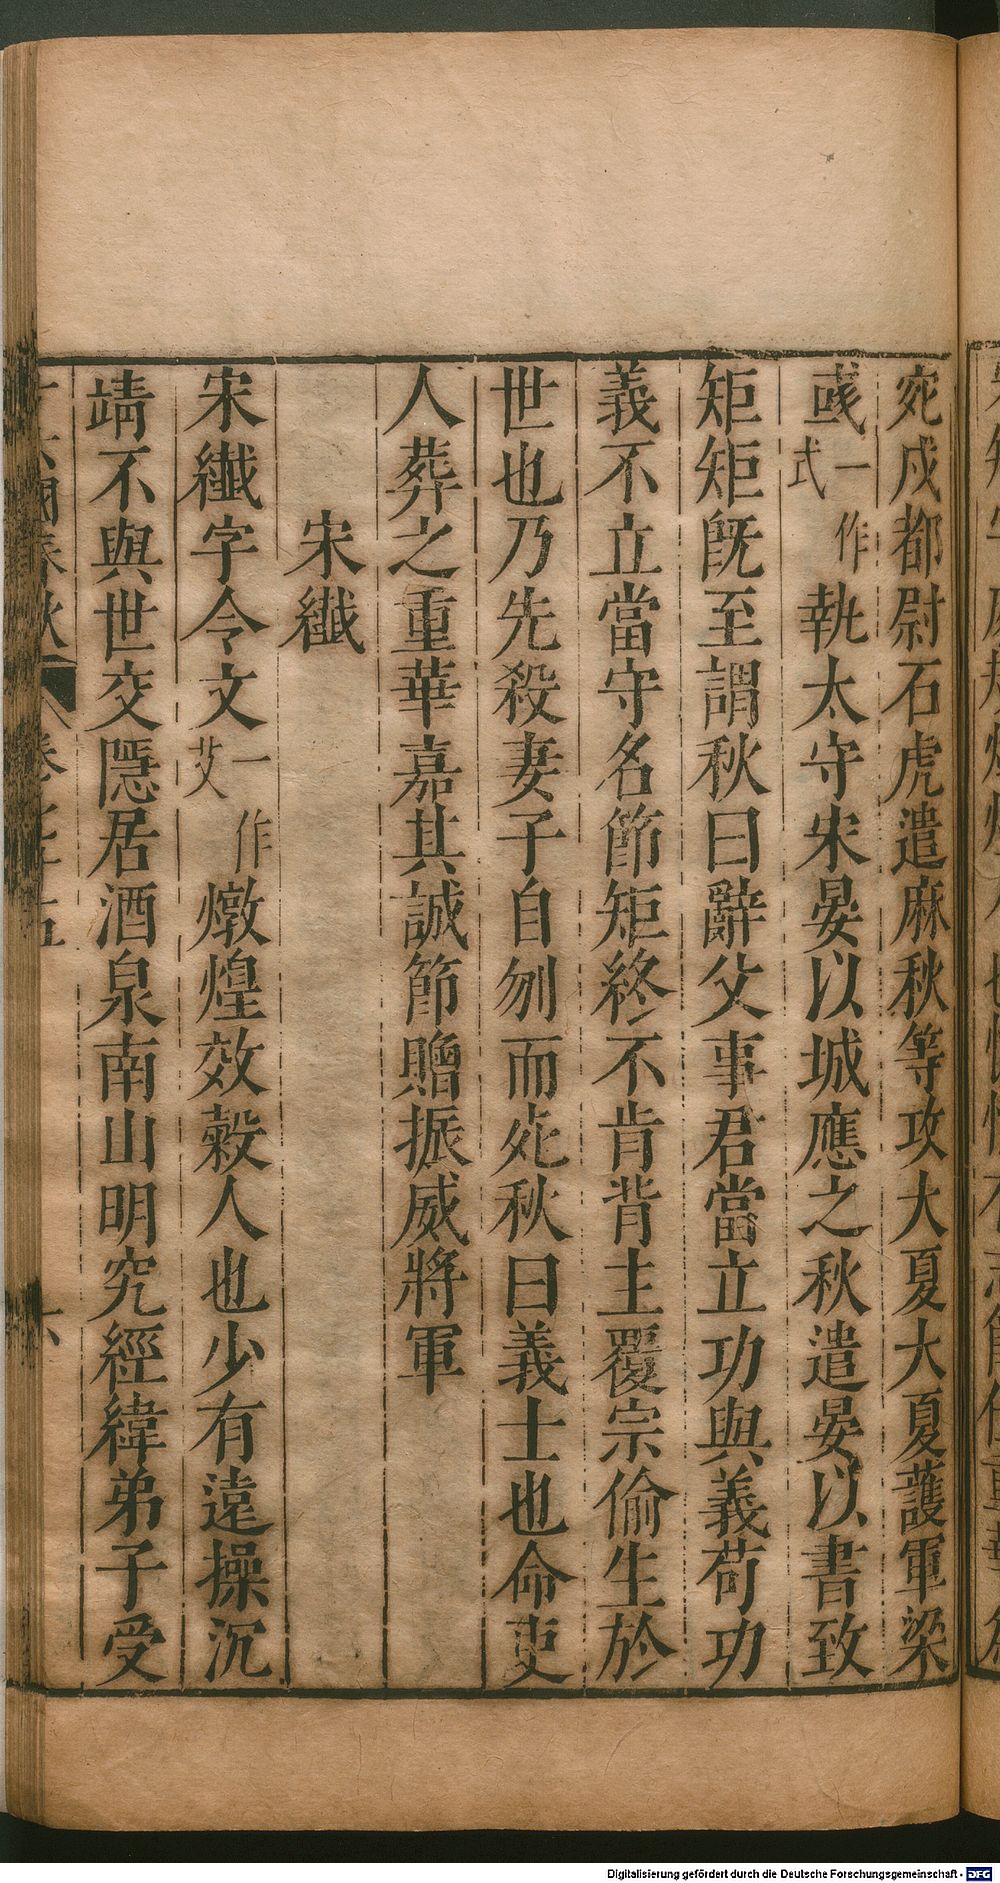 宛戍都尉石虎遣麻秋等攻大夏大夏護軍梁
彧一作式執太守宋晏以城應之秋遣晏以書致
矩矩旣至謂秋曰辭父事君當立功與義苟功
義不立當守名節矩終不肯背主覆宗偷生於
世也乃先殺妻子自刎而死秋曰義士也命吏
人葬之重華嘉其誠節贈振威將軍
宋纖
宋纖字令文一作艾燉煌效穀人也少有遠操沉
靖不與世交隱居酒泉南山明究經緯弟子受
Digitalisierung gefördert durch die Deutsche Forschungsgemeinschaft - DFG